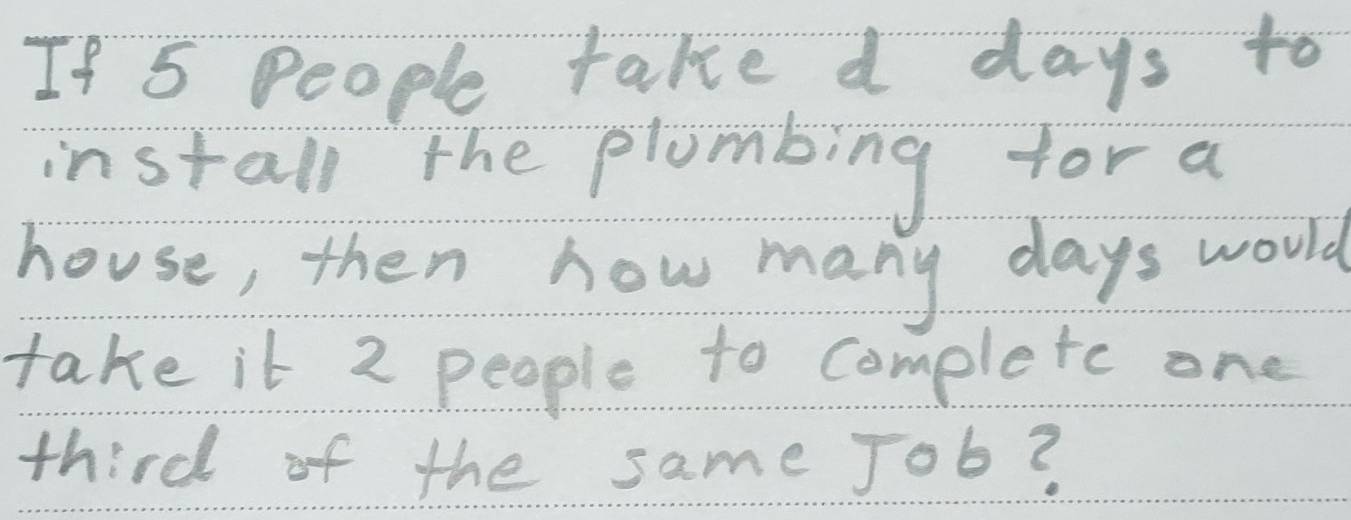 If 5 people take d days to
install the plumbing for a
house, then how many days would
take it 2 people to complete one
third of the same Job?